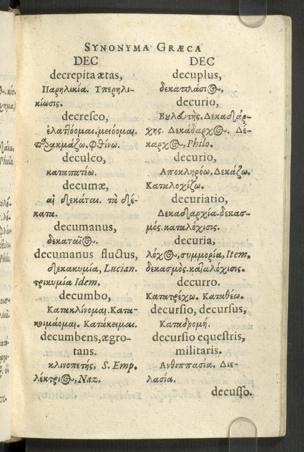 SYNONYMA GRÆCA
DEC
decrepita ætas,
Παρηλικία. Υπερηλι-
κίωσις.
decresco,
ἐλαττόομαι, μειόομαι.
παρακμάζω. Φθίνω.
deculco,
καταπατέω.
decumæ,
αἱ δεκάται. τὰ δέ-
κατα.
decumanus,
δεκαταῖος.
decumanus fluctus,
δεκακυμία, Lucian.
τρικυμία Idem,
decumbo,
Κατακλίνομαι. Κατα-
κοιμάομαι. Κατάκειμαι.
decumbens, ægro-
tans.
κλινοπετής, S. Emp.
λέκτριος, Naz.
DEC
decuplus,
δεκαπλάσιος.
decurio,
Βυλευτής. Δεκαδάρ-
χης. Δεκάδαρχος. Δέ-
καρχος, Philo.
decurio,
Αποκληρόω. Δεκάζω.
Καταλοχίζω.
decuriatio,
Δεκαδαρχία. δεκασ-
μός. καταλόχισις.
decuria,
λόχος, συμμορία, Item,
δεκασμὸς. καταλόχισις.
decurro.
Κατατρέχω. Καταθέω.
decursio, decursus,
Καταδρομή.
decursio equestris,
militaris.
Ανθιππασία. Διε-
λασία.
decusso.